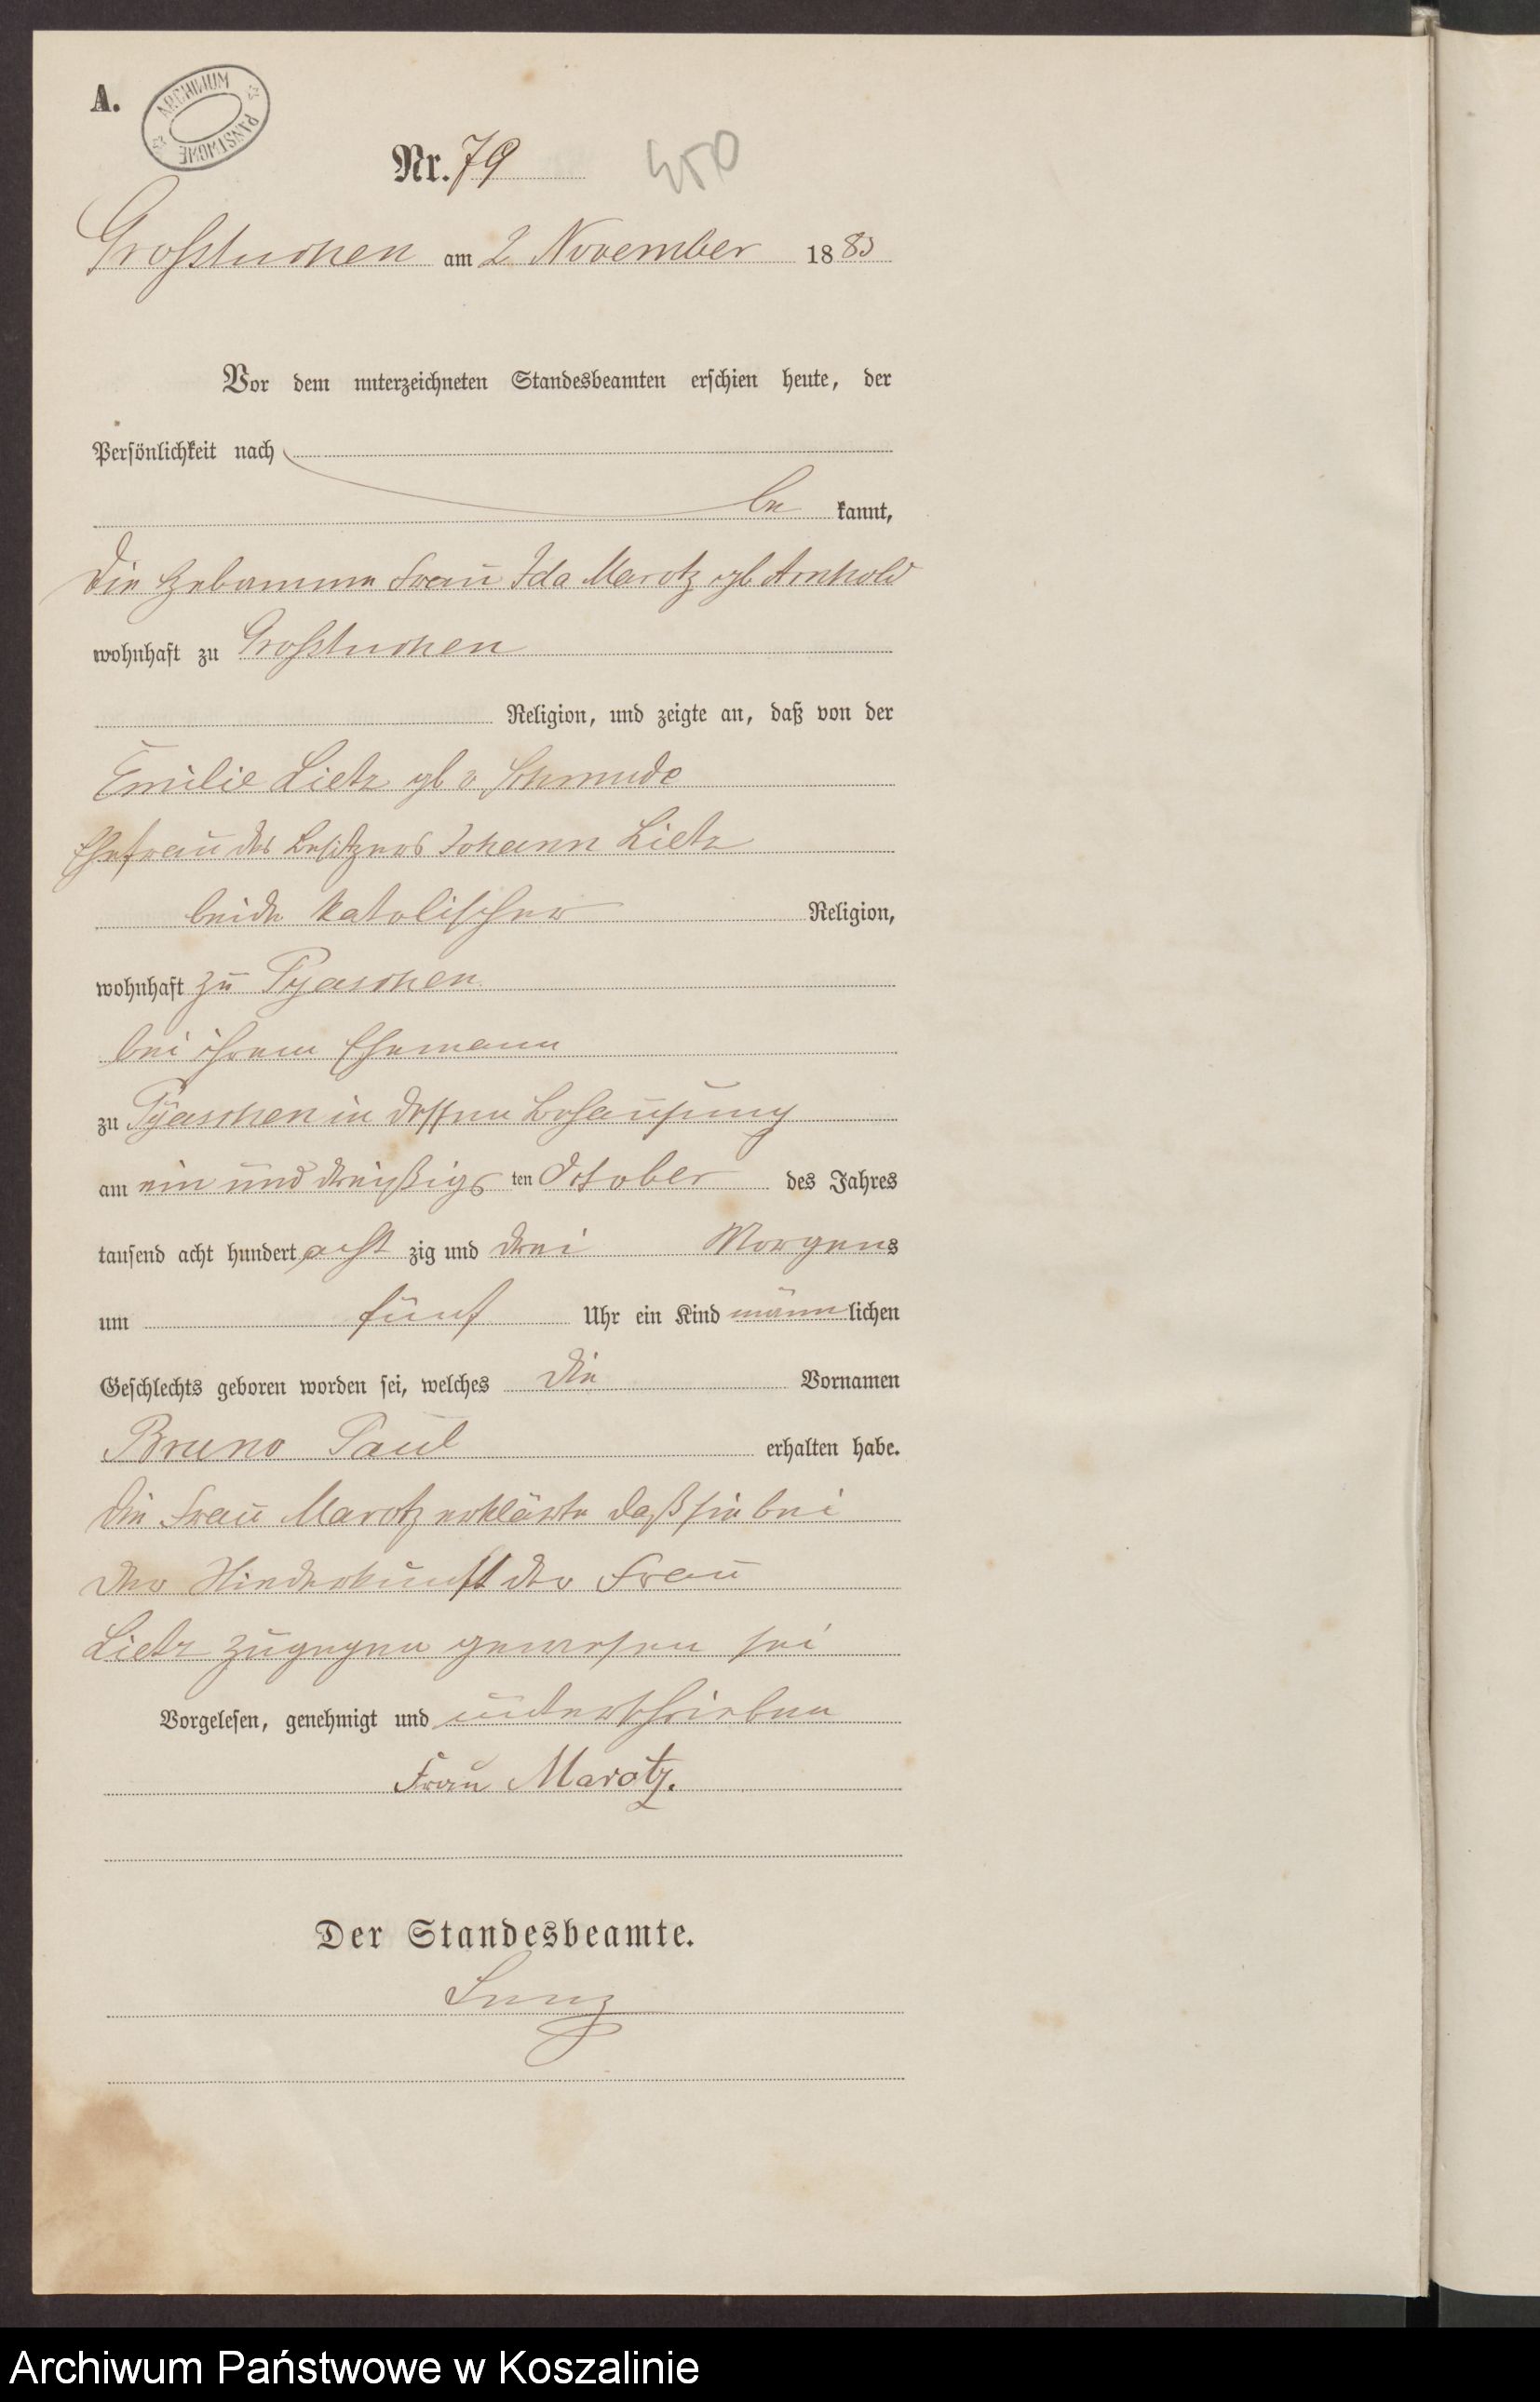 A.
ARCHIWUM PAŃSTWOWE
Nr. 79
450
Großtuchen am 2 November 1883
Vor dem unterzeichneten Standesbeamten erschien heute, der
Persönlichkeit nach
be kannt,
die Hebamme Frau Ida Marotz gb Arnhold
wohnhaft zu Großtuchen
Religion, und zeigte an, daß von der
Emilie Lietz gb v Schmude
Ehefrau des Besitzers Johann Lietz
beide katolischer Religion,
wohnhaft zu Pyaschen
bei ihrem Ehemann
zu Pyaschen in dessen Behausung
am ein und dreißigs ten October des Jahres
tausend acht hundert acht zig und drei Morgens
um fünf Uhr ein Kind männ lichen
Geschlechts geboren worden sei, welches die Vornamen
Bruno Paul erhalten habe.
die Frau Marotz erklärte daß sie bei
der Niederkunft der Frau
Lietz zugegen gewesen sei
Vorgelesen, genehmigt und unterschrieben
Frau Marotz.
Der Standesbeamte.
Archiwum Państwowe w Koszalinie